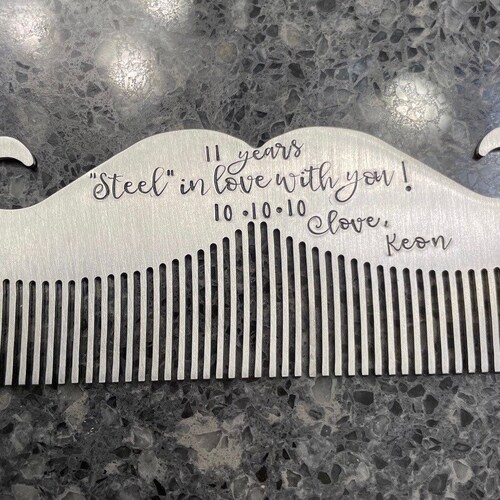 11 years
"Steel" in love with you!
10•10•10
Love,
Keon